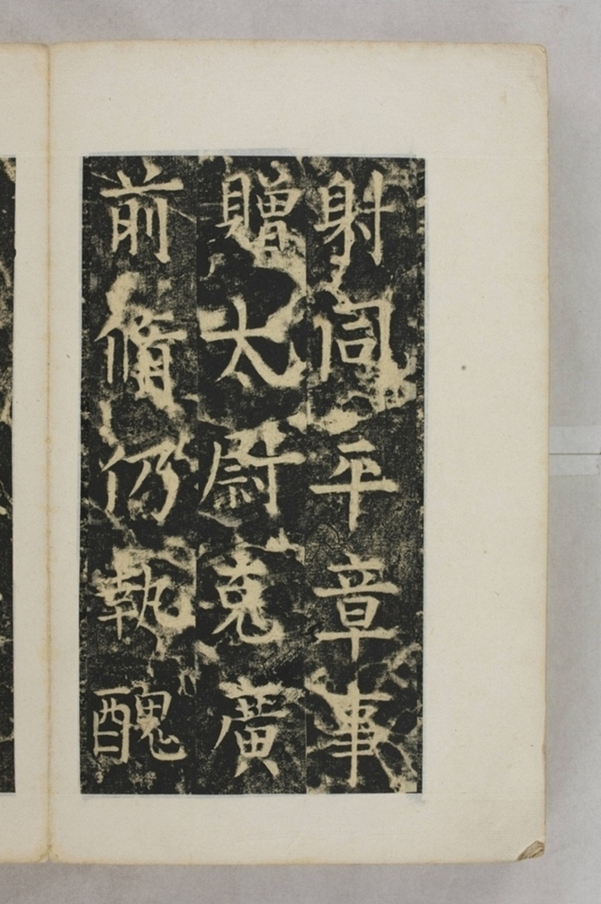 射同平章事
贈太尉克廣
前脩仍執醜